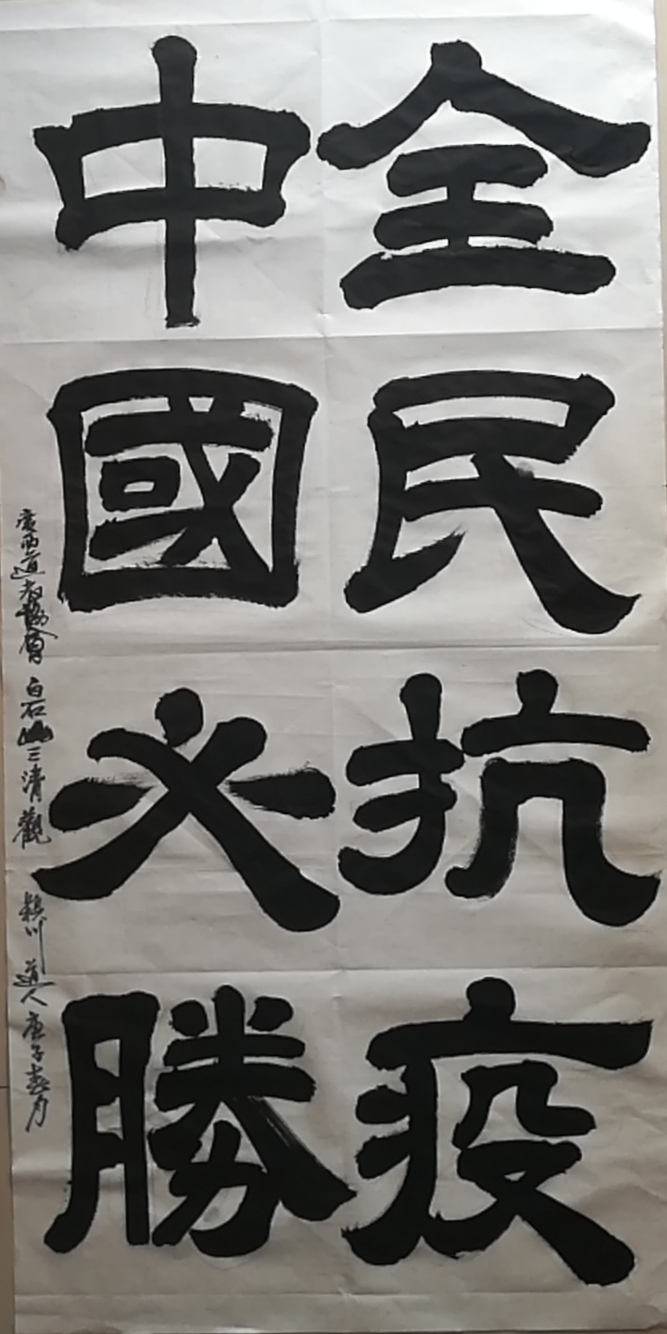 全民抗疫
中國必勝
廣西道教協會 白石山三清觀 穎川道人 庚子春月